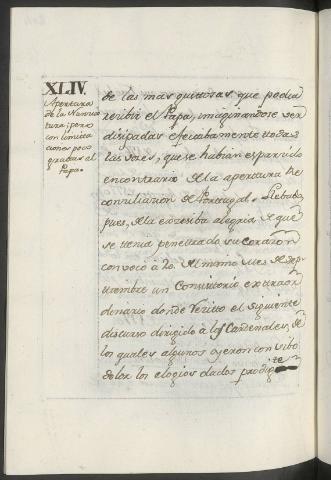 XLIV.
Apertura
de la Nuncia
tura; pero
con limita
ciones poco
gratas al
Papa.
de las mas gustosas, que podia
recibir el Papa, imaginandose ser
disipadas efectivamente todas
las voces, que se habian esparcido
en contrario de la apertura, re
conciliacion de Portugal. Rebato,
pues, de la excesiva alegria de que
se tenia penetrado su corazon
convocó à 20. del mismo mes de Sep
tiembre un Consistorio extraor
dinario donde recitó el siguiente
discurso dirigido à los Cardenales, de
los quales algunos oyeron con
dolor los elogios dados prodig